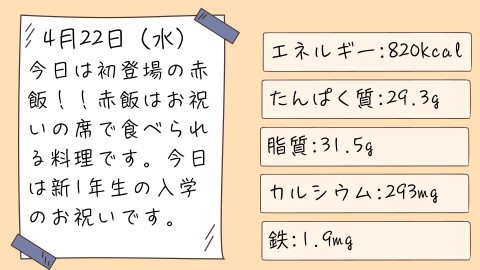 4月22日（水）
今日は初登場の赤
飯！！赤飯はお祝
いの席で食べられ
る料理です。今日
は新1年生の入学
のお祝いです。
エネルギー:820kcal
たんぱく質:29.3g
脂質:31.5g
カルシウム:293mg
鉄:1.9mg